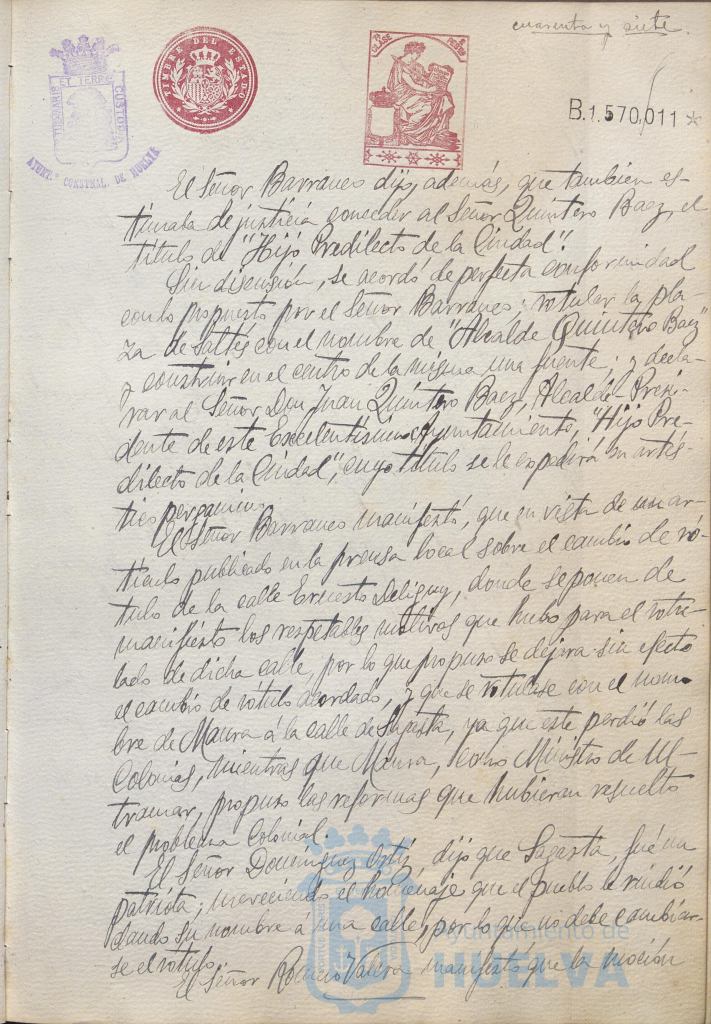 cuarenta y siete.
TIMBRE DEL ESTADO
CLASE
B.1.570,011 *
PORTUS MARIS ET TERRE CUSTODIA
AYUNT.º CONSTNAL. DE HUELVA
El Señor Barranco dijo, además, que también es-
timaba de justicia conceder al Señor Quintero Baez, el
título de "Hijo Predilecto de la Ciudad".
Sin discusión, se acordó de perfecta conformidad
con lo propuesto por el Señor Barranco; rotular la pla-
za de Saltés con el nombre de "Alcalde Quintero Baez"
y construir en el centro de la misma una fuente; y decla-
rar al Señor Don Juan Quintero Baez, Alcalde-Presi-
dente de este Excelentísimo Ayuntamiento, "Hijo Pre-
dilecto de la Ciudad", cuyo título se le expedirá en artís-
tico pergamino.
El Señor Barranco manifestó, que en vista de un ar-
tículo publicado en la prensa local sobre el cambio de ró-
tulo de la calle Ernesto Deligny, donde se ponen de
manifiesto los respetables motivos que hubo para el rotu-
lado de dicha calle, por lo que propuso se dejara sin efecto
el cambio de rótulo acordado, y que se rotulase con el nom-
bre de Maura á la calle de Sagasta, ya que este perdió las
Colonias, mientras que Maura, como Ministro de Ul-
tramar, propuso las reformas que hubieran resuelto
el problema Colonial.
El Señor Domínguez Ortiz, dijo que Sagasta, fué un
patriota, mereciendo el homenaje que el pueblo le rindió
dando su nombre á una calle, por lo que no debe cambiar-
se el rótulo.
El Señor Romero Valera manifestó que la moción
Ayuntamiento de
HUELVA